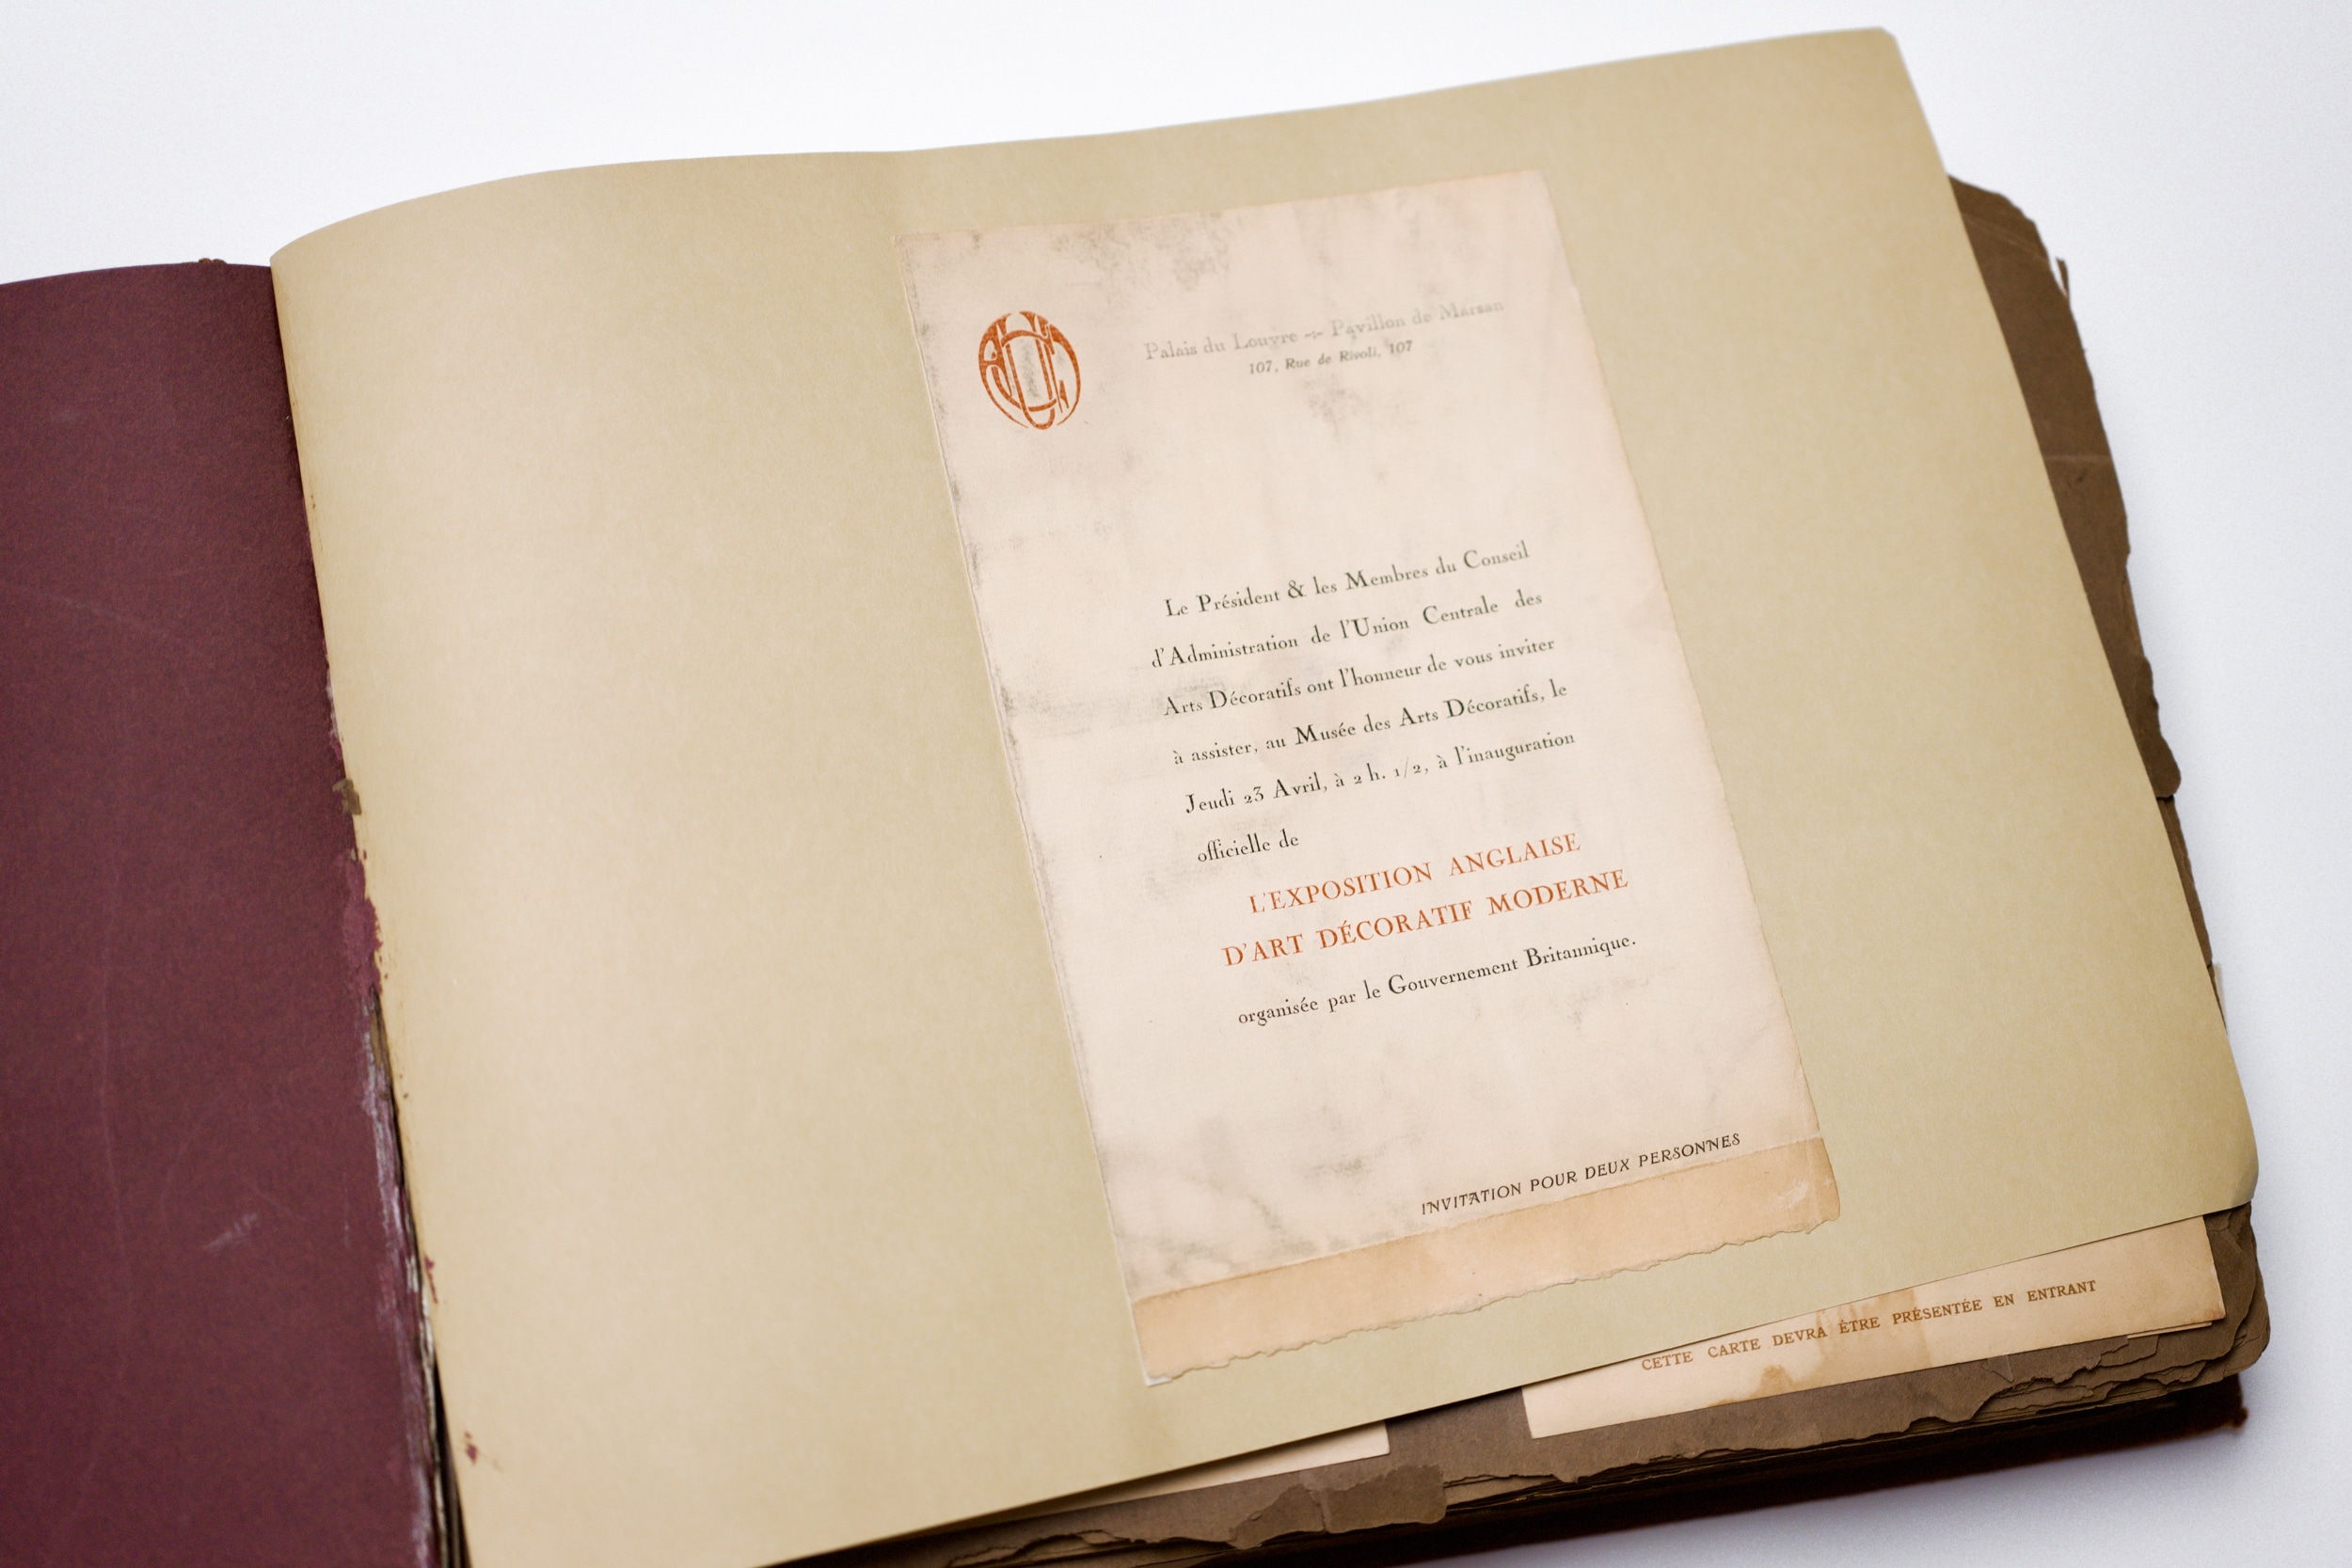 Palais du Louvre -+- Pavillon de Marsan
107, Rue de Rivoli, 107
Le Président & les Membres du Conseil
d'Administration de l'Union Centrale des
Arts Décoratifs ont l'honneur de vous inviter
à assister, au Musée des Arts Décoratifs, le
Jeudi 23 Avril, à 2 h. 1/2, à l'inauguration
officielle de
L'EXPOSITION ANGLAISE
D'ART DÉCORATIF MODERNE
organisée par le Gouvernement Britannique.
INVITATION POUR DEUX PERSONNES
CETTE CARTE DEVRA ÊTRE PRÉSENTÉE EN ENTRANT